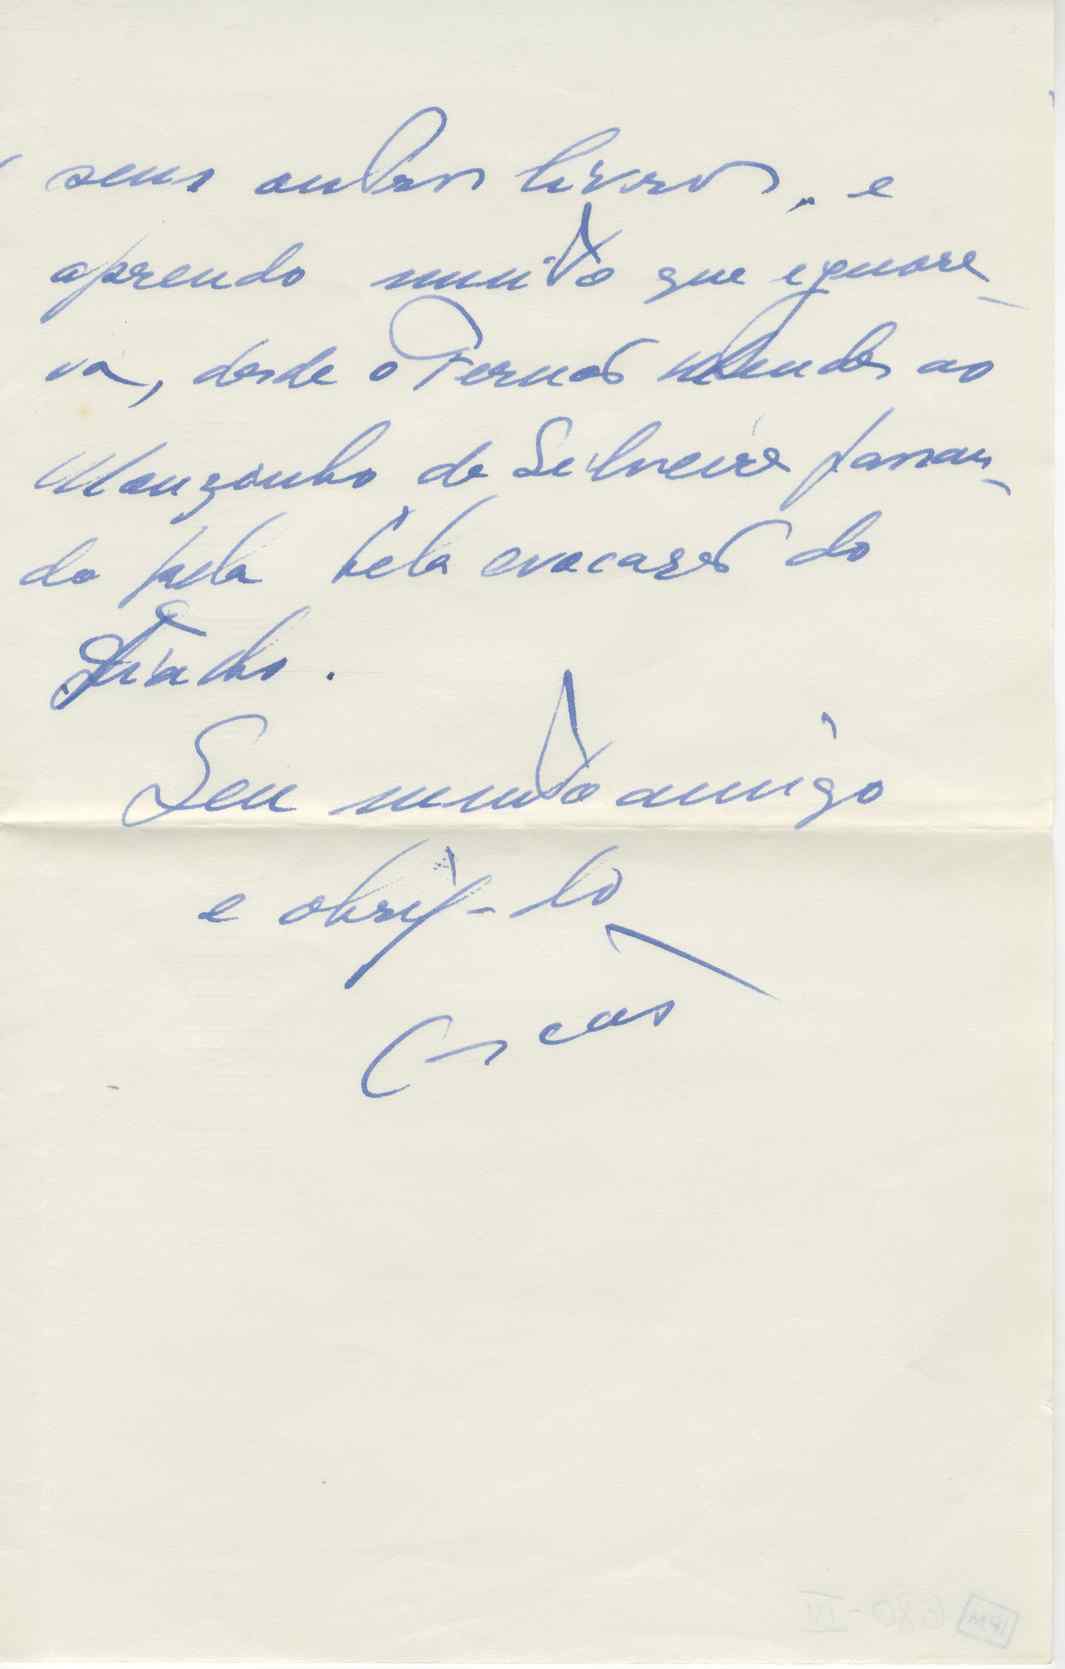 seus outros livros, e
aprendo muito que ignora-
va, desde o Fernão Mendes ao
Mouzinho da Silveira passan-
do pela bela evocação do
Chiado.
Seu muito amigo
e obrig-do